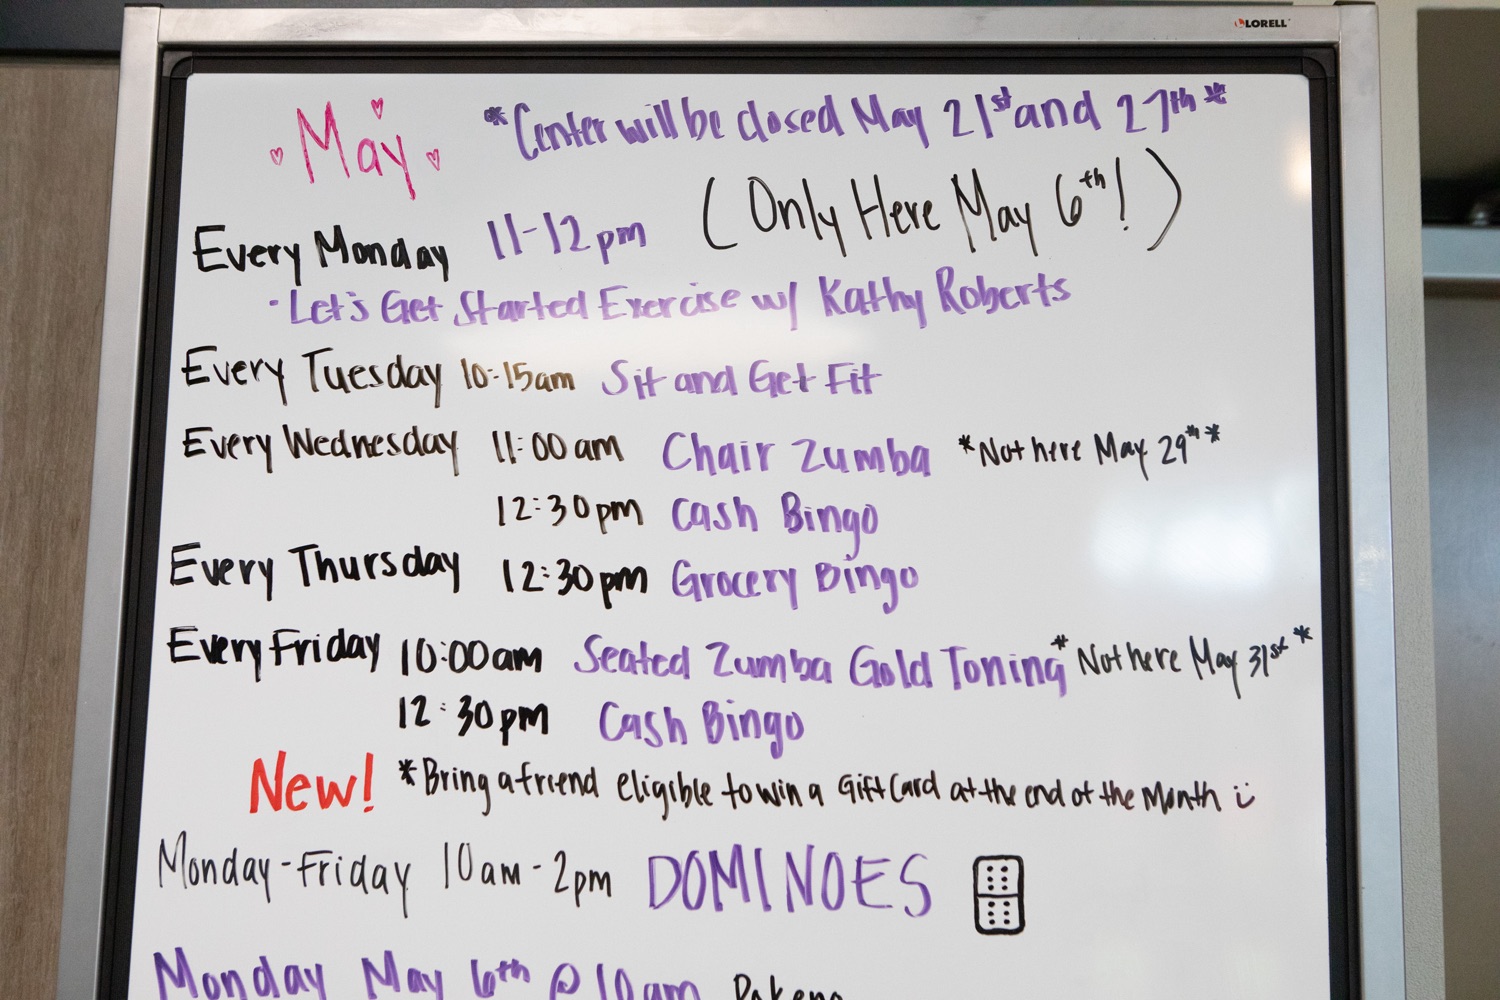 LORELL
May *Center will be closed May 21st and 27th*
Every Monday 11-12pm (Only Here May 6th!)
· Let's Get Started Exercise w/ Kathy Roberts
Every Tuesday 10:15am Sit and Get Fit
Every Wednesday 11:00am Chair Zumba *Not here May 29th*
12:30pm Cash Bingo
Every Thursday 12:30pm Grocery Bingo
Every Friday 10:00am Seated Zumba Gold Toning *Not here May 31st*
12:30pm Cash Bingo
New! *Bring a friend eligible to win a Gift Card at the end of the Month
Monday-Friday 10am-2pm DOMINOES
Monday May 6th @ 10am